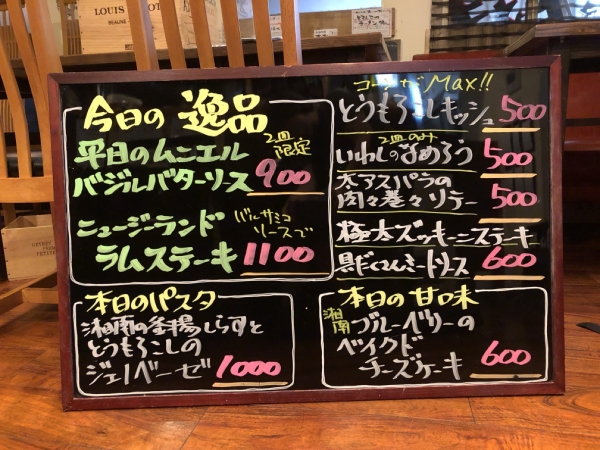 LOUIS
BEAUNE
今日の 逸品
平目のムニエル
2皿限定
バジルバターソース 900
ニュージーランド
バルサミコソースで
ラムステーキ 1100
コーンがMax!!
とうもろこしキッシュ 500
2皿のみ
いわしのなめろう 500
太アスパラの
肉々巻々ソテー 500
極太ズッキーニステーキ
具だくさんミートソース 600
本日のパスタ
湘南の釜揚しらすと
とうもろこしの
ジェノベーゼ 1000
本日の甘味
湘南
ブルーベリーの
ベイクド
チーズケーキ 600